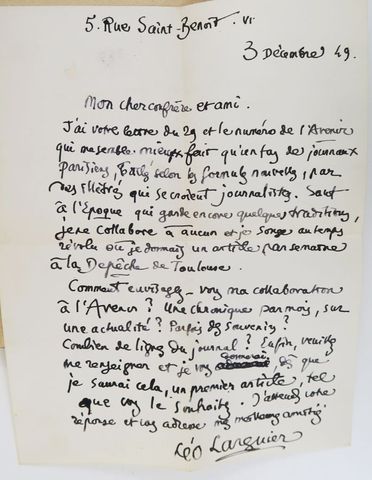 5. Rue Saint-Benoit. VI
3 Décembre 49.
Mon cher confrère et ami.
J'ai votre lettre du 29 et le numéro de l'Avenir
qui me semble mieux fait qu'un tas de journaux
parisiens, selon les formules nouvelles, par
des illettrés qui se croient journalistes. Sauf
à l'Epoque qui garde encore quelques traditions,
je ne collabore à aucun et je songe au temps
révolu où je donnais un article par semaine
à la Depêche de Toulouse.
Comment envisagez-vous ma collaboration
à l'Avenir ? Une chronique par mois, sur
une actualité ? Parfois des souvenirs ?
Combien de lignes du journal ? Enfin, veuillez
me renseigner et je vous donnerai, dès que
je saurai cela, un premier article, tel
que vous le souhaitez. J'attends votre
réponse et vous adresse mes meilleures amitiés
Léo Larguier